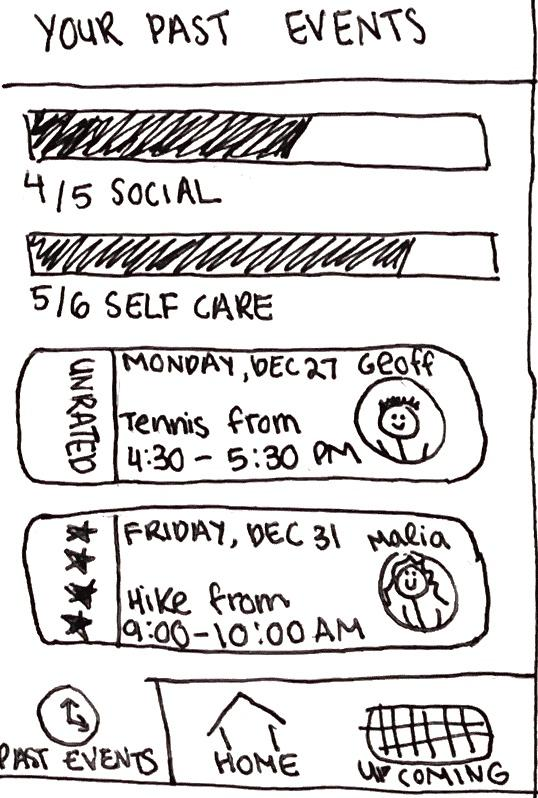 YOUR PAST EVENTS
4/5 SOCIAL
5/6 SELF CARE
UNRATED
MONDAY, DEC 27 Geoff
Tennis from
4:30 - 5:30 PM
FRIDAY, DEC 31 Malia
Hike from
9:00-10:00 AM
PAST EVENTS
HOME
UPCOMING